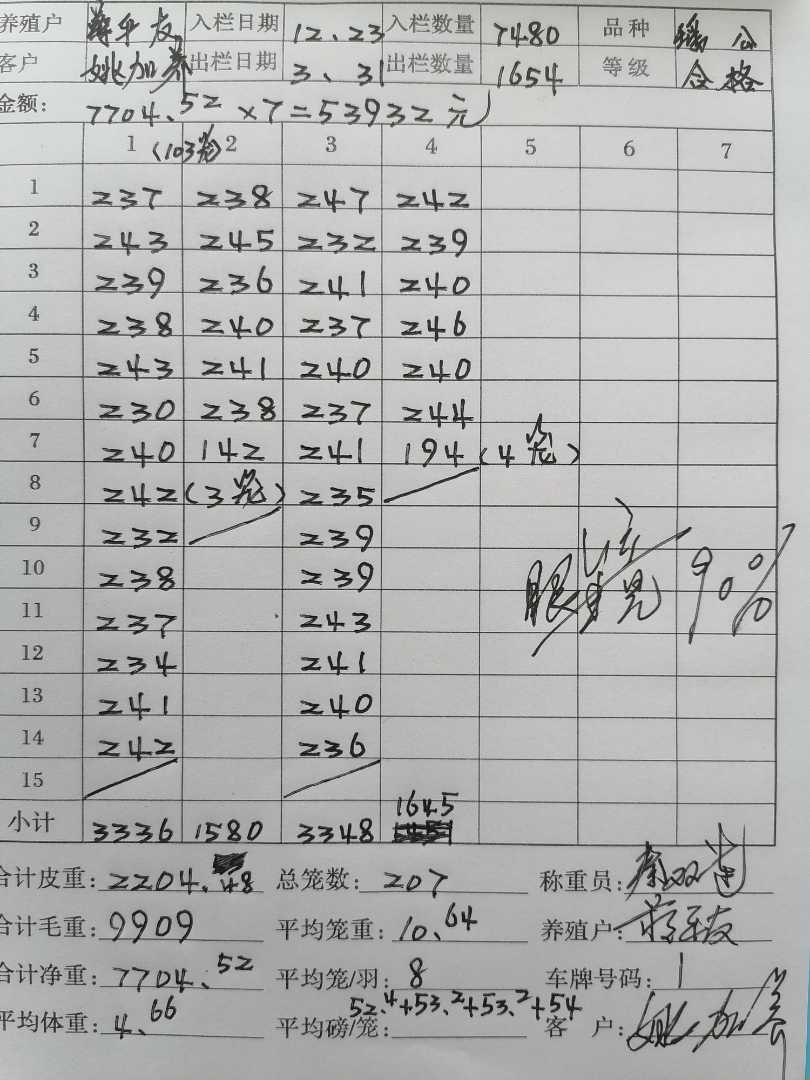 养殖户 蒋平友 入栏日期 12、23 入栏数量 7480 品种 瑶公
客户 姚加养 出栏日期 3、31 出栏数量 1654 等级 合格
金额: 7704.52×7=53932元
1 (103笼) 2 3 4 5 6 7
1 237 238 247 242
2 243 245 232 239
3 239 236 241 240
4 238 240 237 246
5 243 241 240 240
6 230 238 237 244
7 240 142 241 194 (4笼)
8 242 (3笼) 235
9 232 239
10 238 239
11 237 243
12 234 241
13 241 240
14 242 236
15
90%
小计 3336 1580 3348 1645
合计皮重: 2204.48 总笼数: 207 称重员:
合计毛重: 9909 平均笼重: 10.64 养殖户:
合计净重: 7704.52 平均笼/羽: 8 车牌号码: 1
平均体重: 4.66 平均磅/笼: 52.4+53.2+53.2+54 客户: 姚加养